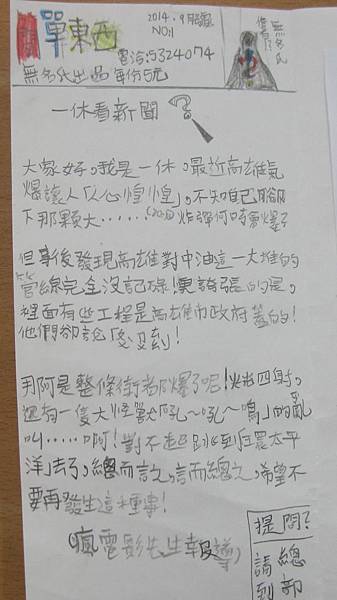 單東西
2014.9月號
NO:1
電洽:5324074
無名氏出品 每份5元
無名氏
售
一休看新聞
大家好。我是一休。最近高雄氣
爆讓人「人心惶惶」。不知自己腳
下那顆大……炸彈何時會爆了
但事後發現高雄對中油這一大堆的
管線完全沒記錄!更誇張的是。
裡面有些工程是高雄市政府蓋的!
他們卻說「沒收到」!
那可是整條街都爆了呢!火光四射。
還有一隻大怪獸「吼~吼~嗚」的亂
叫……啊!對不起 跳到「太平
洋」去了。總而言之,言而總之。希望不
要再發生這種事!
(瘋電影先生報導)
提問?
總部
請到